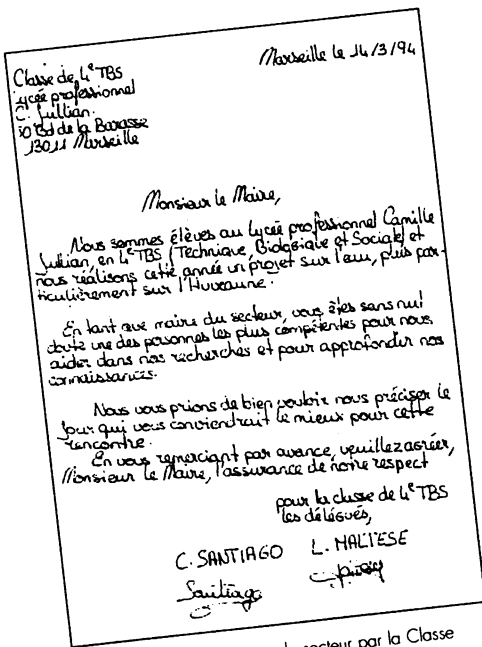 Marseille le 14/3/94
Classe de 4e TBS
Lycée professionnel
C. Jullian.
50 Bd de la Barasse
13011 Marseille
Monsieur le Maire,
Nous sommes élèves au lycée professionnel Camille
Jullian, en 4e TBS (Technique, Biologique et Sociale) et
nous réalisons cette année un projet sur l'eau, plus par-
ticulièrement sur l'Huveaune.
En tant que maire du secteur, vous êtes sans nul
doute une des personnes les plus compétentes pour nous
aider dans nos recherches et pour approfondir nos
connaissances.
Nous vous prions de bien vouloir nous préciser le
jour qui vous conviendrait le mieux pour cette
rencontre.
En vous remerciant par avance, veuillez agréer,
Monsieur le Maire, l'assurance de notre respect
pour la classe de 4e TBS
les délégués,
C. SANTIAGO L. MALTESE
Santiago
secteur par la Classe